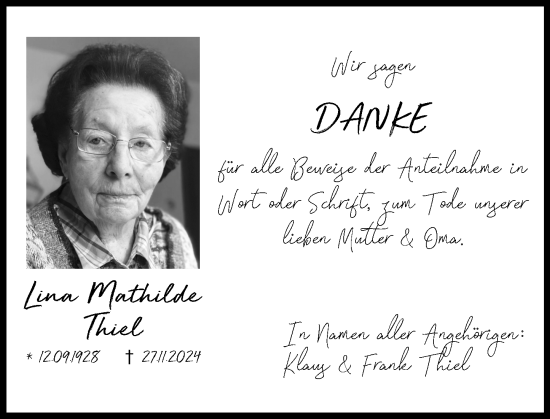 Wir sagen
DANKE
für alle Beweise der Anteilnahme in
Wort oder Schrift, zum Tode unserer
lieben Mutter & Oma.
Lina Mathilde
Thiel
* 12.09.1928 † 27.11.2024
In Namen aller Angehörigen:
Klaus & Frank Thiel